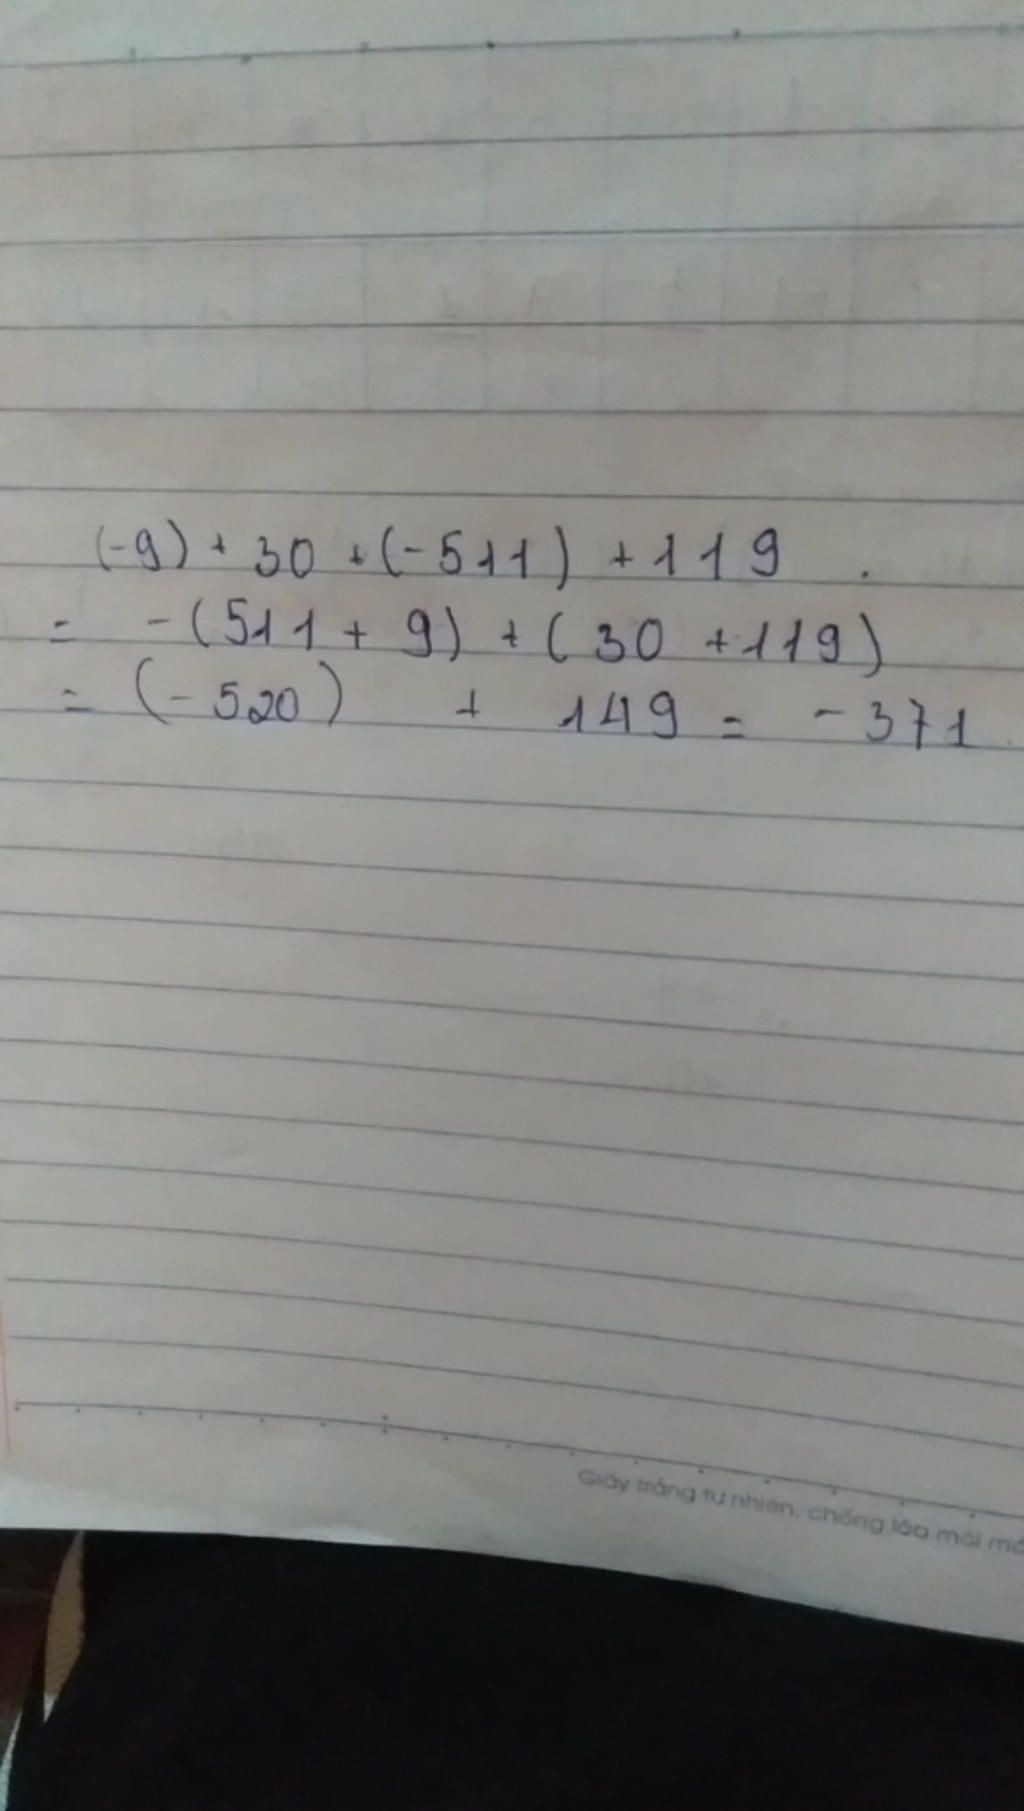 (-9) + 30 + (-511) + 119
= -(511 + 9) + (30 + 119)
= (-520) + 149 = -371
Giấy trắng tự nhiên, chống lóa mỏi